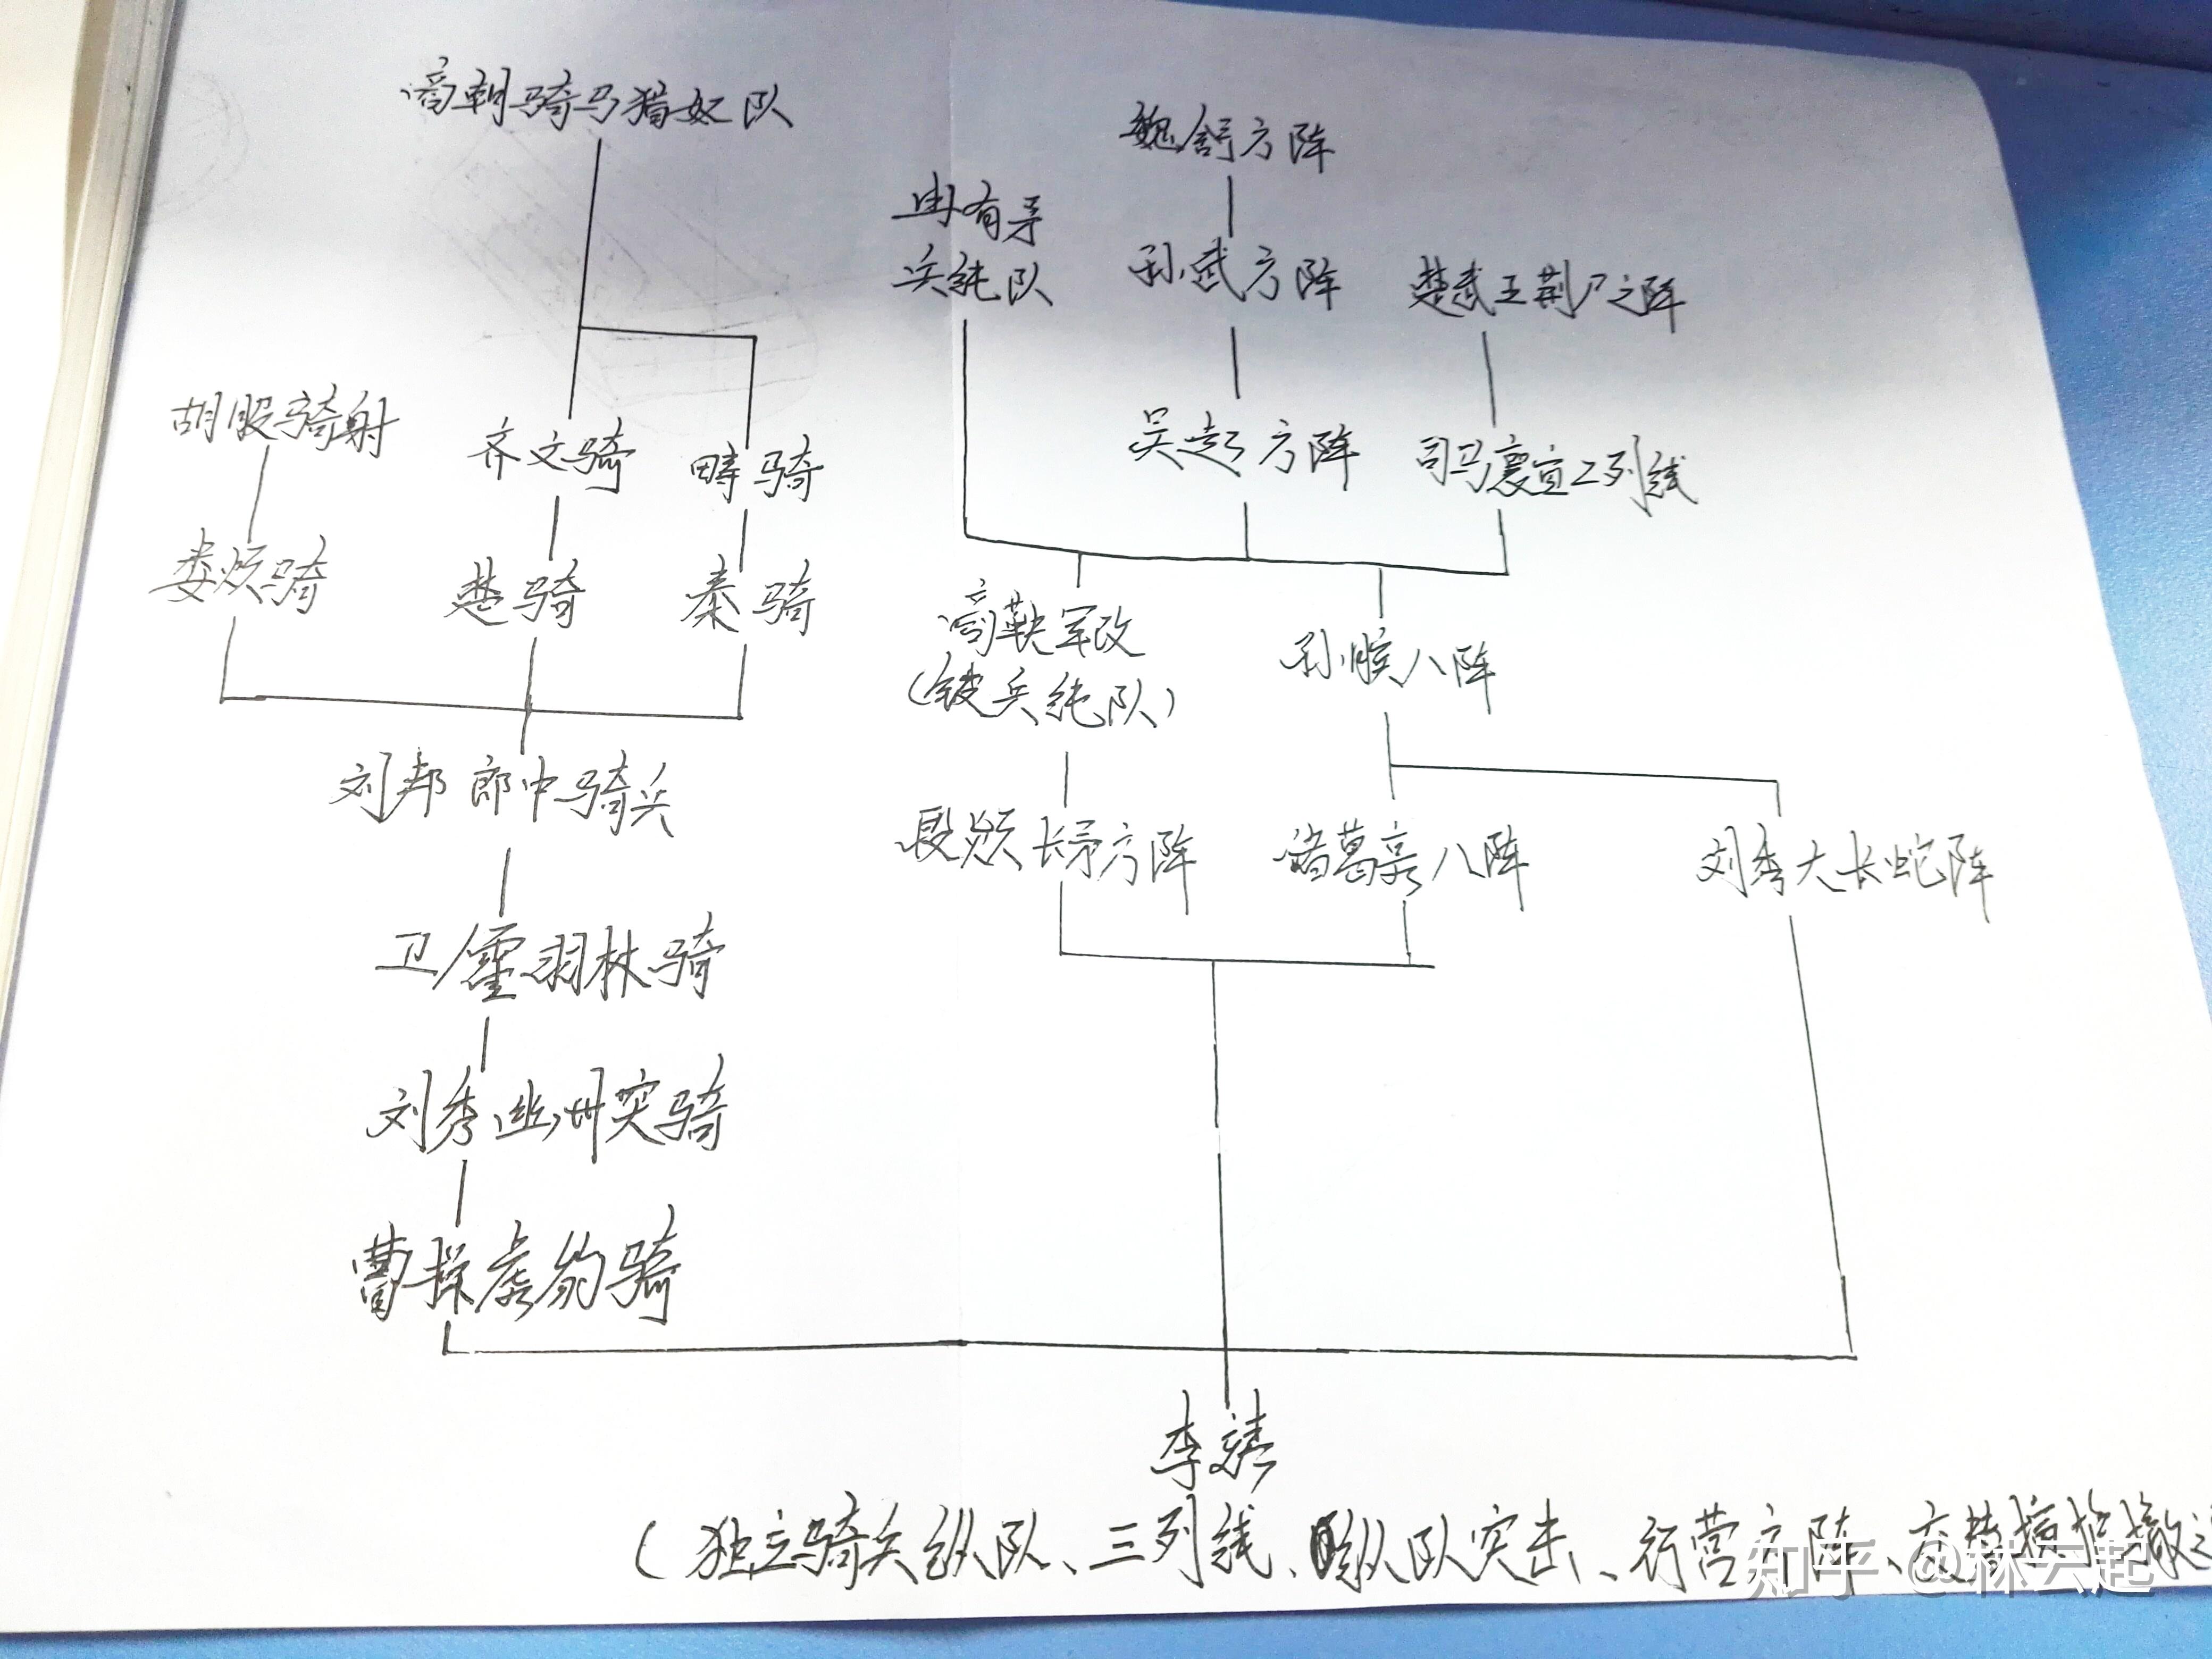 商朝骑马猎奴队
魏舒方阵
冉有矛
兵纯队
孙武方阵
楚武王荆尸之阵
胡服骑射
齐文骑
畴骑
吴起方阵
司马穰苴二列线
娄烦骑
楚骑
秦骑
商鞅军改
(铍兵纯队)
孙膑八阵
刘邦郎中骑兵
段颎长矛方阵
诸葛亮八阵
刘秀大长蛇阵
卫/霍羽林骑
刘秀幽州突骑
曹操虎豹骑
李靖
(独立骑兵纵队、三列线、纵队突击、行营方阵、交替掩护撤退
知乎 @林云起